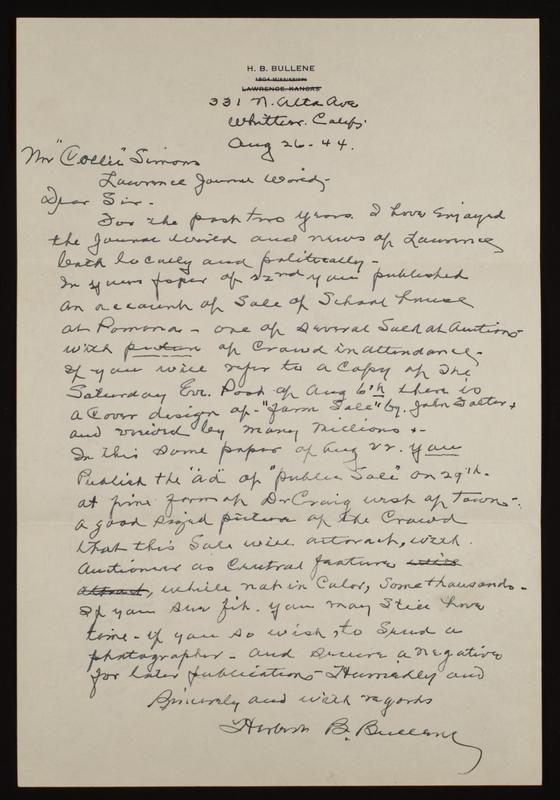 H. B. BULLENE
1604 MISSISSIPPI
LAWRENCE, KANSAS
331 N. Alta Ave
Whittier. Calif.
Aug 26-44.
Mr "Collie" Simons
Lawrence Journal World,
Dear Sir-
For the past two years I have enjoyed
the Journal World and news of Lawrence
both locally and politically-
In yours paper of 22nd you published
an account of Sale of School house
at Pomona - one of several Sued at Auctions
with picture of Crowd in attendance,
If you will refer to a Copy of The
Saturday Eve. Post of Aug 6th there is
a Cover design of - "Farm Sale" by. John Falter +
and viewed by many millions +-
In this same paper of Aug 22. you
Publish the "ad" of "public Sale" on 29th.
at fine farm of Dr Craig west of town-.
a good sized picture of the Crowd
that this Sale will attract, with
Auctioneer as Central feature will
attract, while not in Color, Some thousands-
If you see fit. you may Still have
time - if you so wish, to Send a
photographer - and secure a negative
for later publications - Hurriedly and
Sincerely and with regards
Herbert B. Bullene